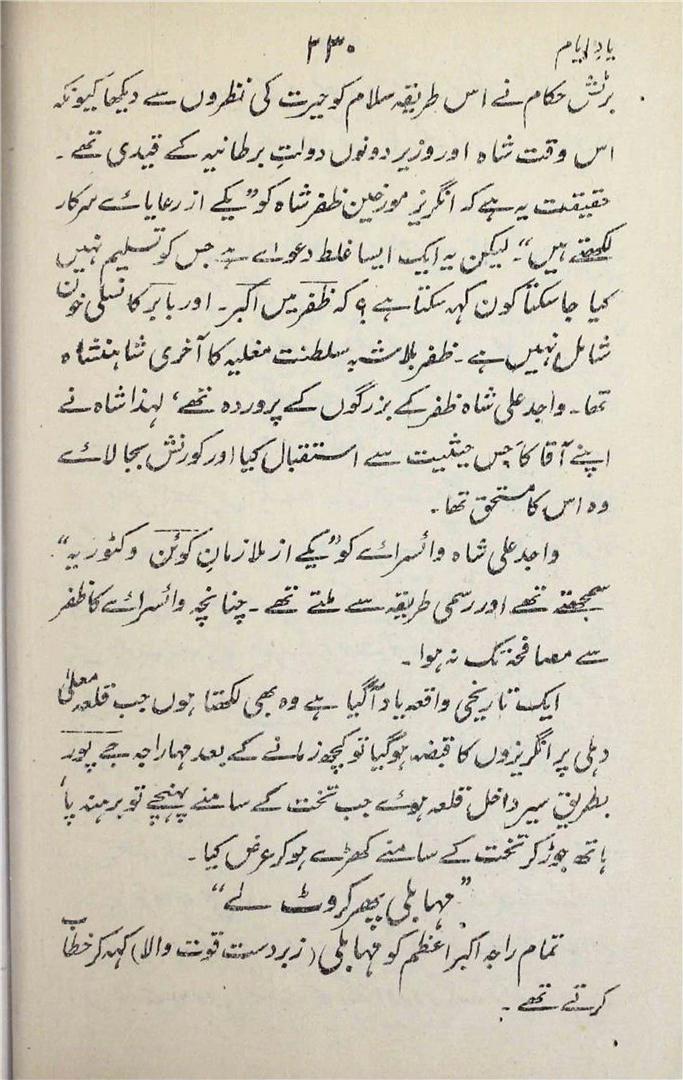 یادِ ایام
۲۳۰
برٹش حکام نے اس طریقہ سلام کو حیرت کی نظروں سے دیکھا کیونکہ
اس وقت شاہ اور وزیر دونوں دولتِ برطانیہ کے قیدی تھے۔
حقیقت یہ ہے کہ انگریز مورخین ظفر شاہ کو "یکے از رعایائے سرکار
لکھتے ہیں"۔ لیکن یہ ایک ایسا غلط دعواے ہے جس کو تسلیم نہیں
کیا جا سکتا کون کہہ سکتا ہے؟ کہ ظفر میں اکبر۔ اور بابر کا نسلی خون
شامل نہیں ہے۔ ظفر بلا شبہ سلطنت مغلیہ کا آخری شاہنشاہ
تھا۔ واجد علی شاہ ظفر کے بزرگوں کے پروردہ تھے، لہذا شاہ نے
اپنے آقا کا جس حیثیت سے استقبال کیا اور کورنش بجا لائے
وہ اس کا مستحق تھا۔
واجد علی شاہ وائسرائے کو "یکے از ملازمانِ کوئن وکٹوریہ"
سمجھتے تھے اور رسمی طریقہ سے ملتے تھے۔ چنانچہ وائسرائے کا ظفر
سے مصافحہ تک نہ ہوا۔
ایک تاریخی واقعہ یاد آگیا ہے وہ بھی لکھتا ہوں جب قلعہ معلیٰ
دہلی پر انگریزوں کا قبضہ ہوگیا تو کچھ زمانے کے بعد مہاراجہ جے پور
بطریق سیر داخل قلعہ ہوئے جب تخت کے سامنے پہنچے تو برہنہ پا،
ہاتھ جوڑ کر تخت کے سامنے کھڑے ہو کر عرض کیا۔
"مہابلی پھر کروٹ لے"
تمام راجہ اکبر اعظم کو مہابلی (زبردست قوت والا) کہہ کر خطاب
کرتے تھے۔